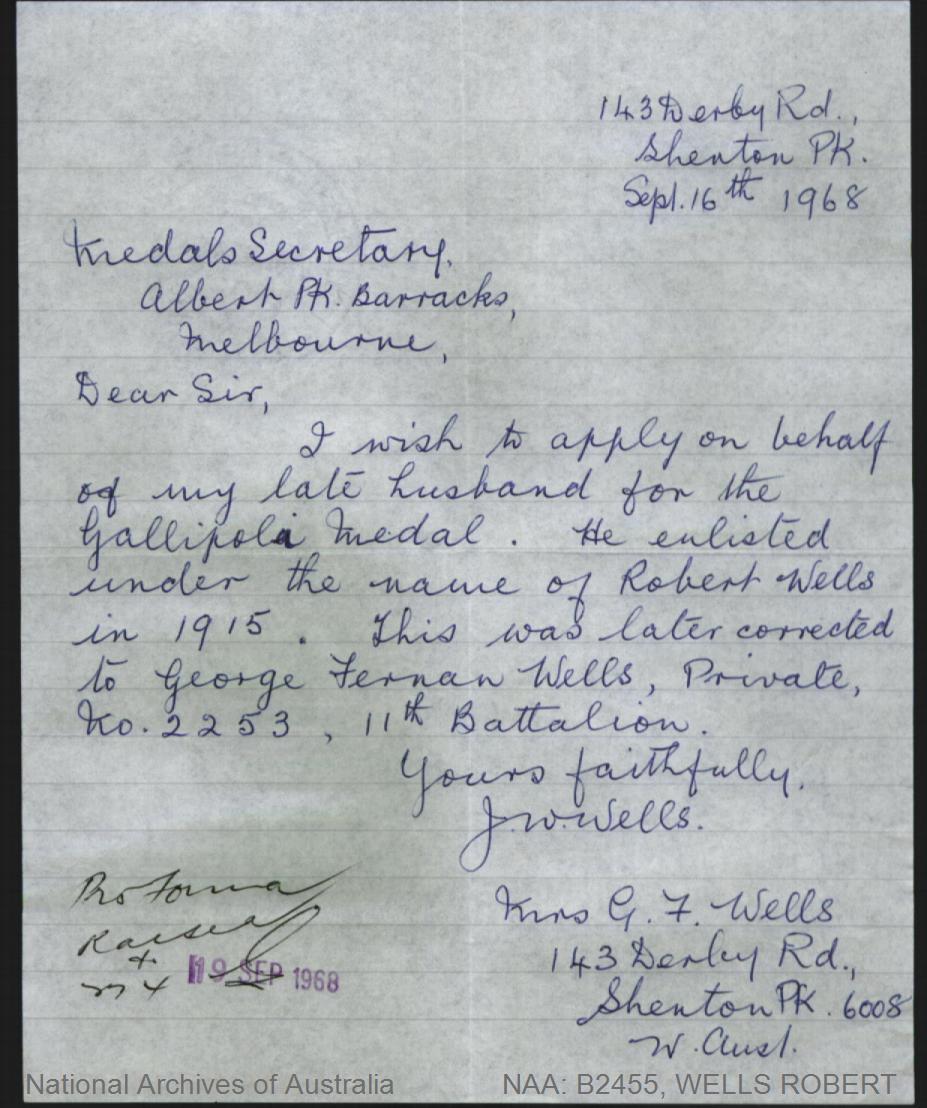 143 Derby Rd.,
Shenton Pk.
Sept. 16th 1968
Medals Secretary,
Albert Pk. Barracks,
Melbourne,
Dear Sir,
I wish to apply on behalf
of my late husband for the
Gallipoli Medal. He enlisted
under the name of Robert Wells
in 1915. This was later corrected
to George Fernan Wells, Private,
No. 2253, 11th Battalion.
Yours faithfully,
J.W. Wells.
Mrs G. F. Wells
143 Derby Rd.,
Shenton Pk. 6008
W. Aust.
Pro Forma
Raised
19 SEP 1968
National Archives of Australia
NAA: B2455, WELLS ROBERT